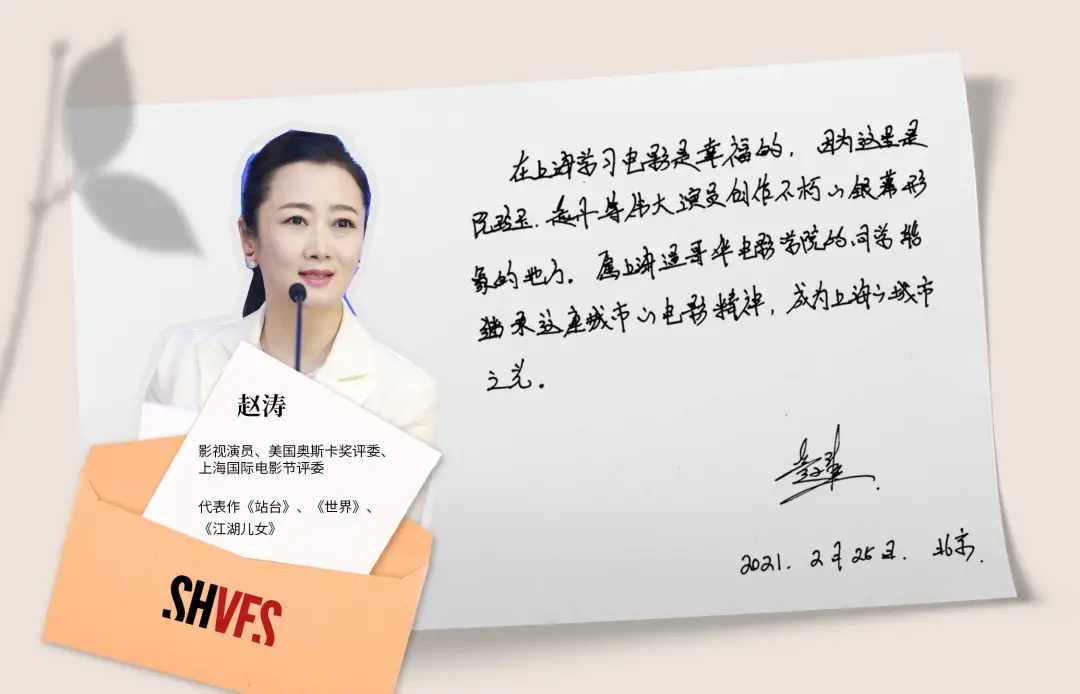 在上海学习电影是幸福的，因为这里是
阮玲玉、赵丹等伟大演员创作不朽的银幕形
象的地方。愿上海温哥华电影学院的同学能
继承这座城市的电影精神，成为上海这城市
之光。
2021. 2月25日. 北京.
赵涛
影视演员、美国奥斯卡奖评委、
上海国际电影节评委
代表作《站台》、《世界》、
《江湖儿女》
SHVFS